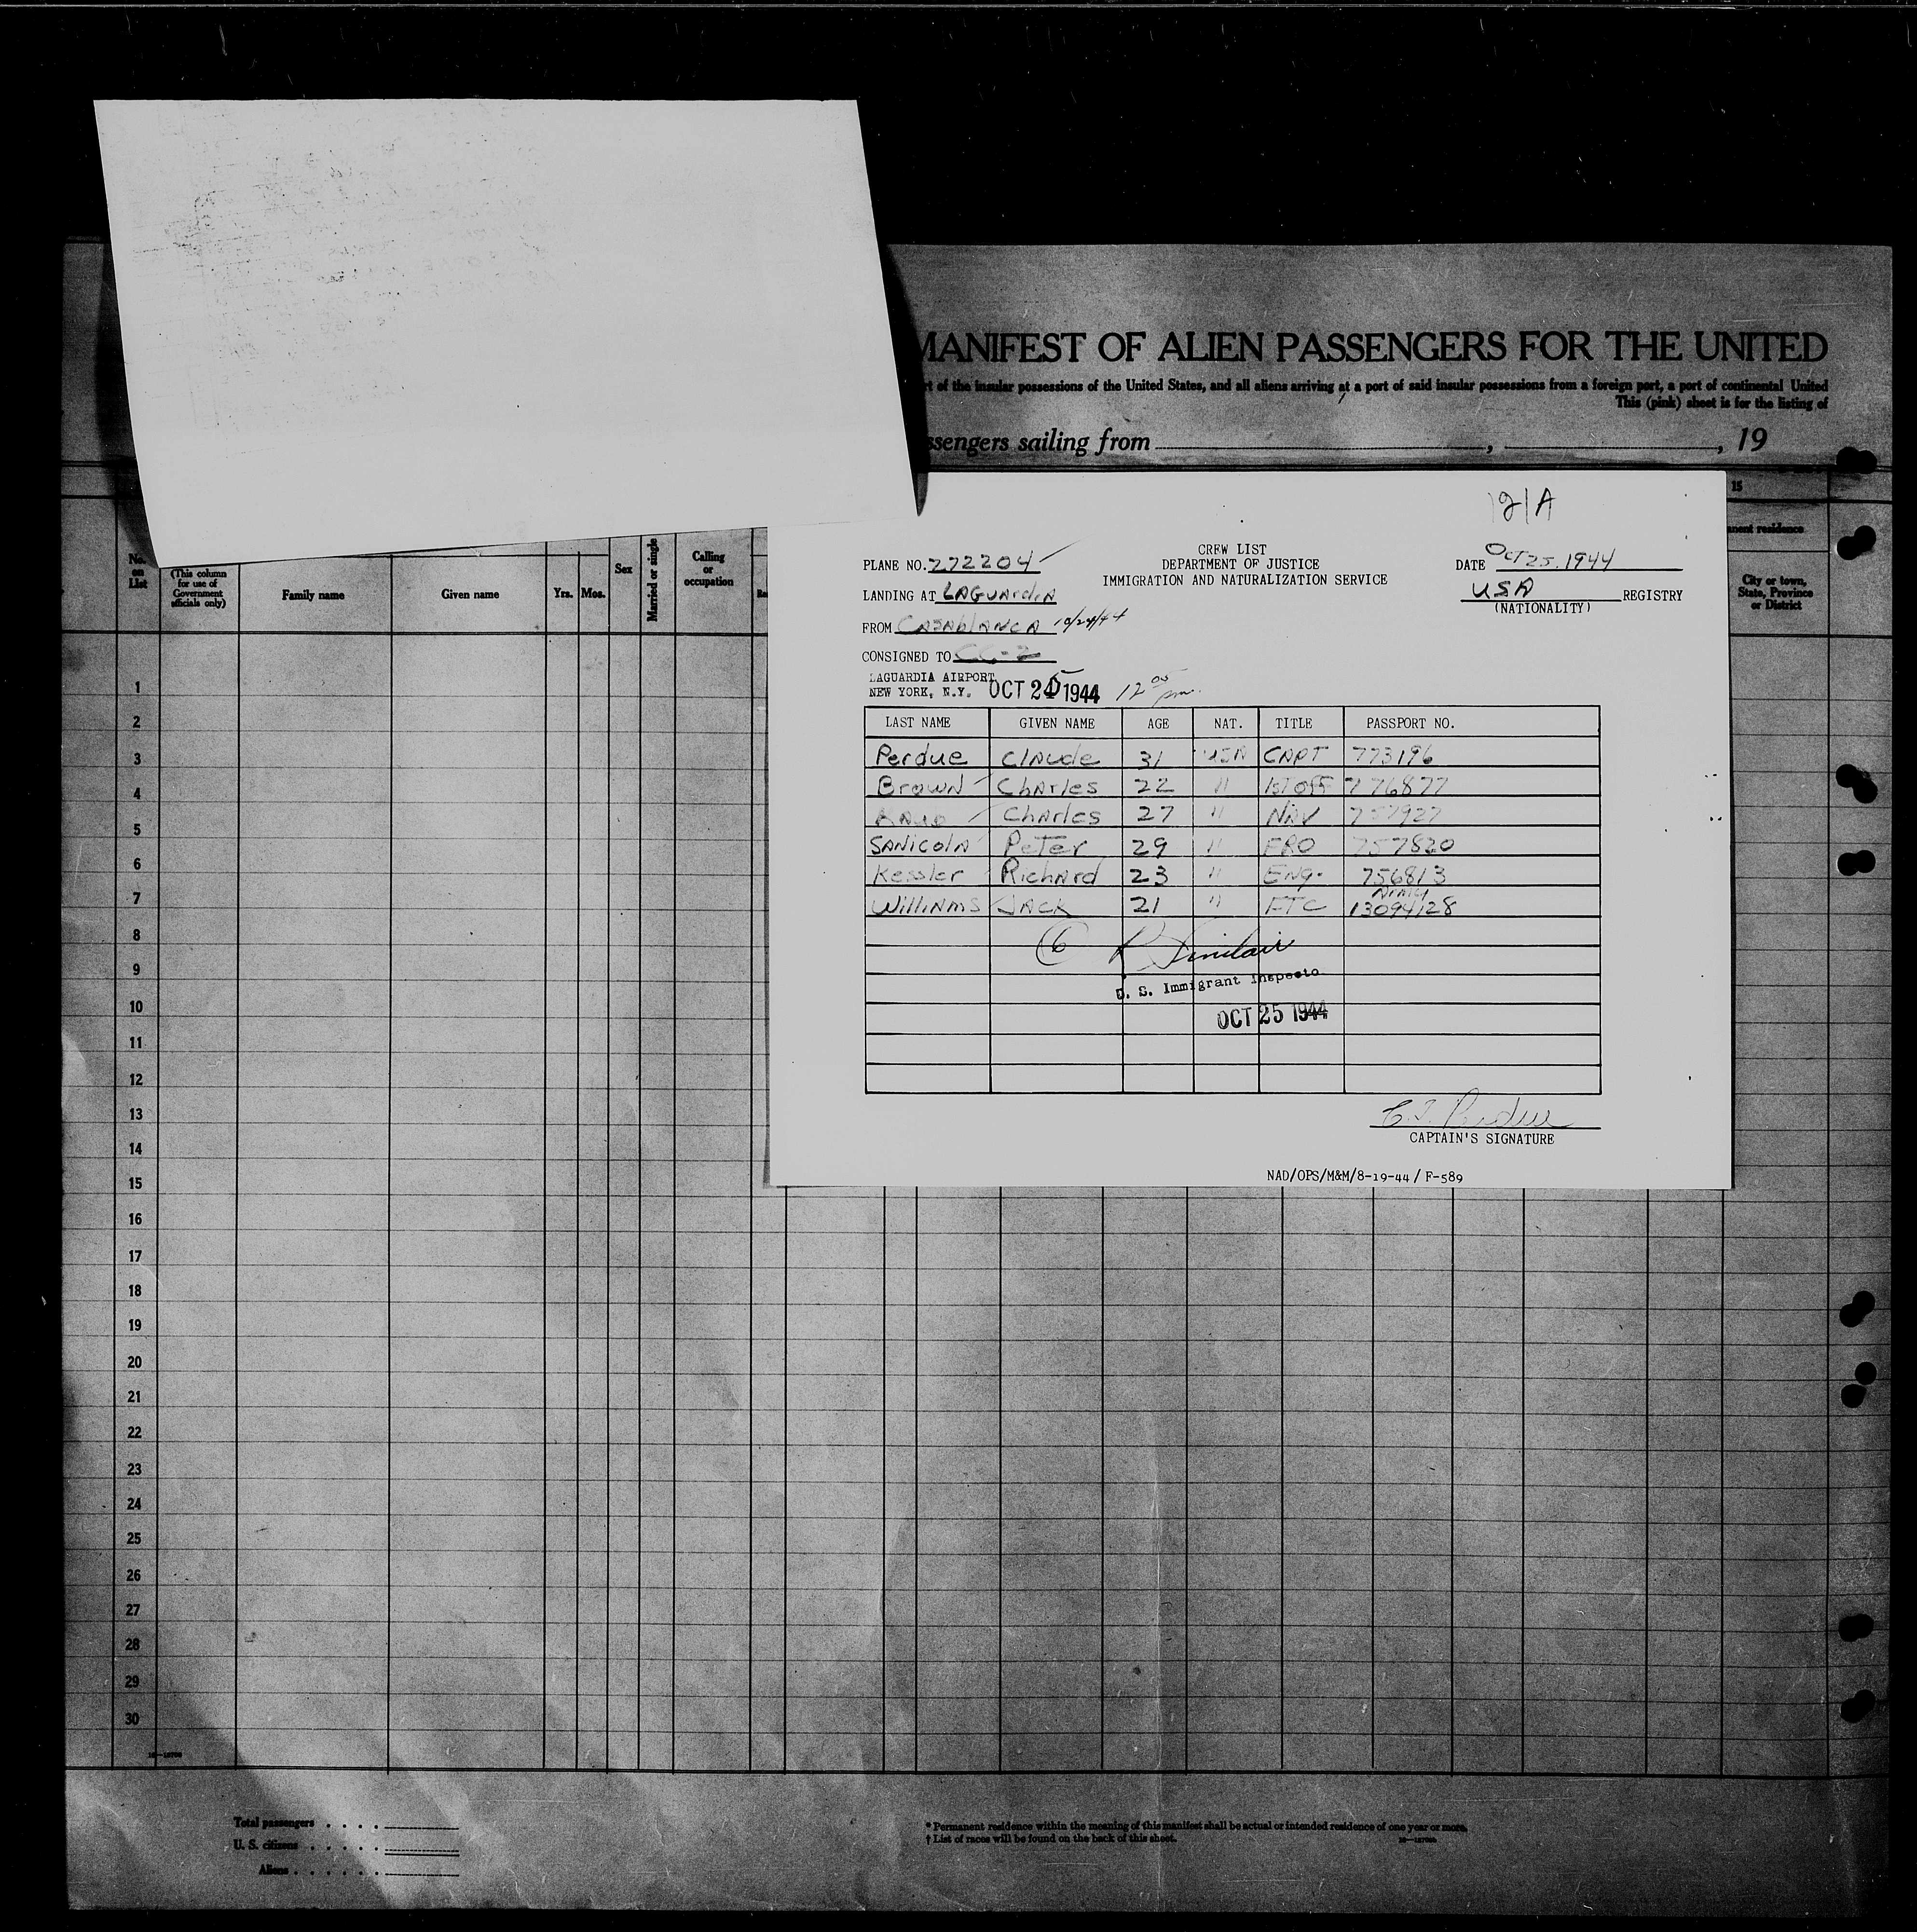 MANIFEST OF ALIEN PASSENGERS FOR THE UNITED
of the insular possessions of the United States, and all aliens arriving at a port of said insular possessions from a foreign port, a port of continental United
This (pink) sheet is for the listing of
sailing from , , 19
15
No. on List
(This column for use of Government officials only)
Family name
Given name
Yrs.
Mos.
Sex
Married or single
Calling or occupation
residence
City or town, State, Province or District
121A
CREW LIST
DEPARTMENT OF JUSTICE
IMMIGRATION AND NATURALIZATION SERVICE
PLANE NO. 272204
DATE Oct 25. 1944
LANDING AT LAGUARdIA
USA REGISTRY
(NATIONALITY)
FROM CASAblANCA 10/24/44
CONSIGNED TO CC-2
LAGUARDIA AIRPORT
NEW YORK, N.Y. OCT 25 1944 12 05 pm.
LAST NAME GIVEN NAME AGE NAT. TITLE PASSPORT NO.
Perdue Claude 31 USA CAPT 773196
Brown Charles 22 " 1st Off 776877
Charles 27 " NAV 757927
SANicolA Peter 29 " FRO 757820
Kessler Richard 23 " Eng. 756813
Williams JACK 21 " FTC 13094128
6 Sinclair
U. S. Immigrant Inspecto
OCT 25 1944
C.J. Perdue
CAPTAIN'S SIGNATURE
NAD/OPS/M&M/8-19-44 / F-589
1
2
3
4
5
6
7
8
9
10
11
12
13
14
15
16
17
18
19
20
21
22
23
24
25
26
27
28
29
30
Total passengers . . . .
U. S. citizens . . . . .
Aliens . . . . . .
* Permanent residence within the meaning of this manifest shall be actual or intended residence of one year or more.
† List of races will be found on the back of this sheet.